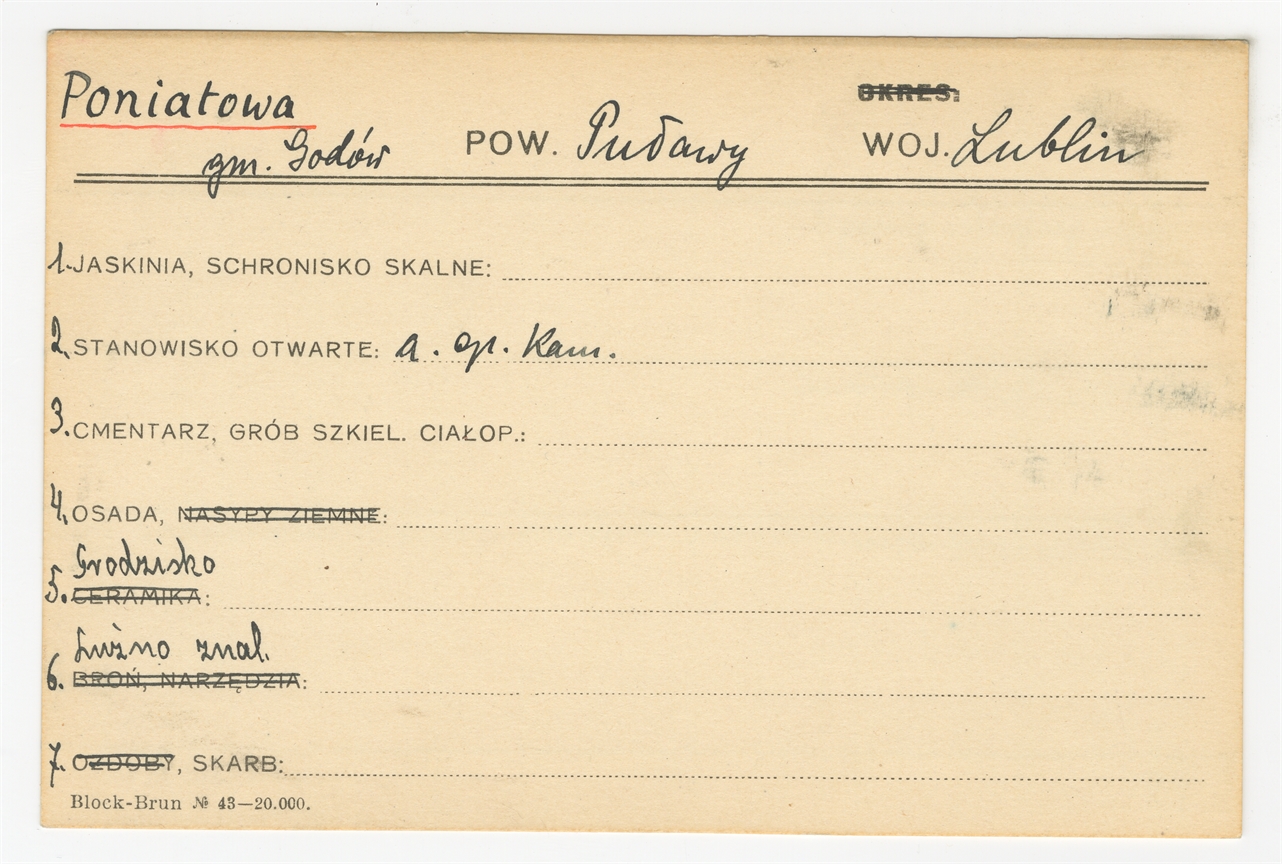 Poniatowa
OKRES:
gm. Godów POW. Puławy WOJ. Lublin
1. JASKINIA, SCHRONISKO SKALNE:
2. STANOWISKO OTWARTE: a. ep. Kam.
3. CMENTARZ, GRÓB SZKIEL. CIAŁOP.:
4. OSADA, NASYPY ZIEMNE:
Grodzisko
5. CERAMIKA:
Luźno znal.
6. BROŃ, NARZĘDZIA:
7. OZDOBY, SKARB:
Block-Brun № 43—20.000.